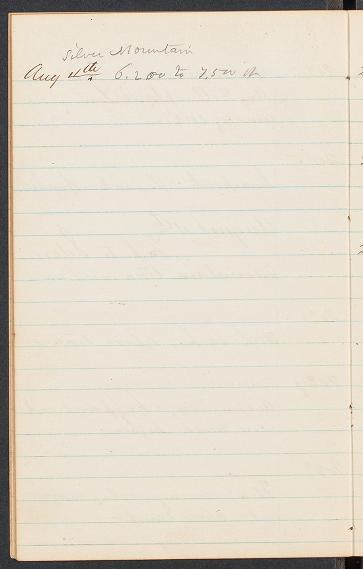 Silver Mountain
Aug 4th 6.200 to 7,500 ft